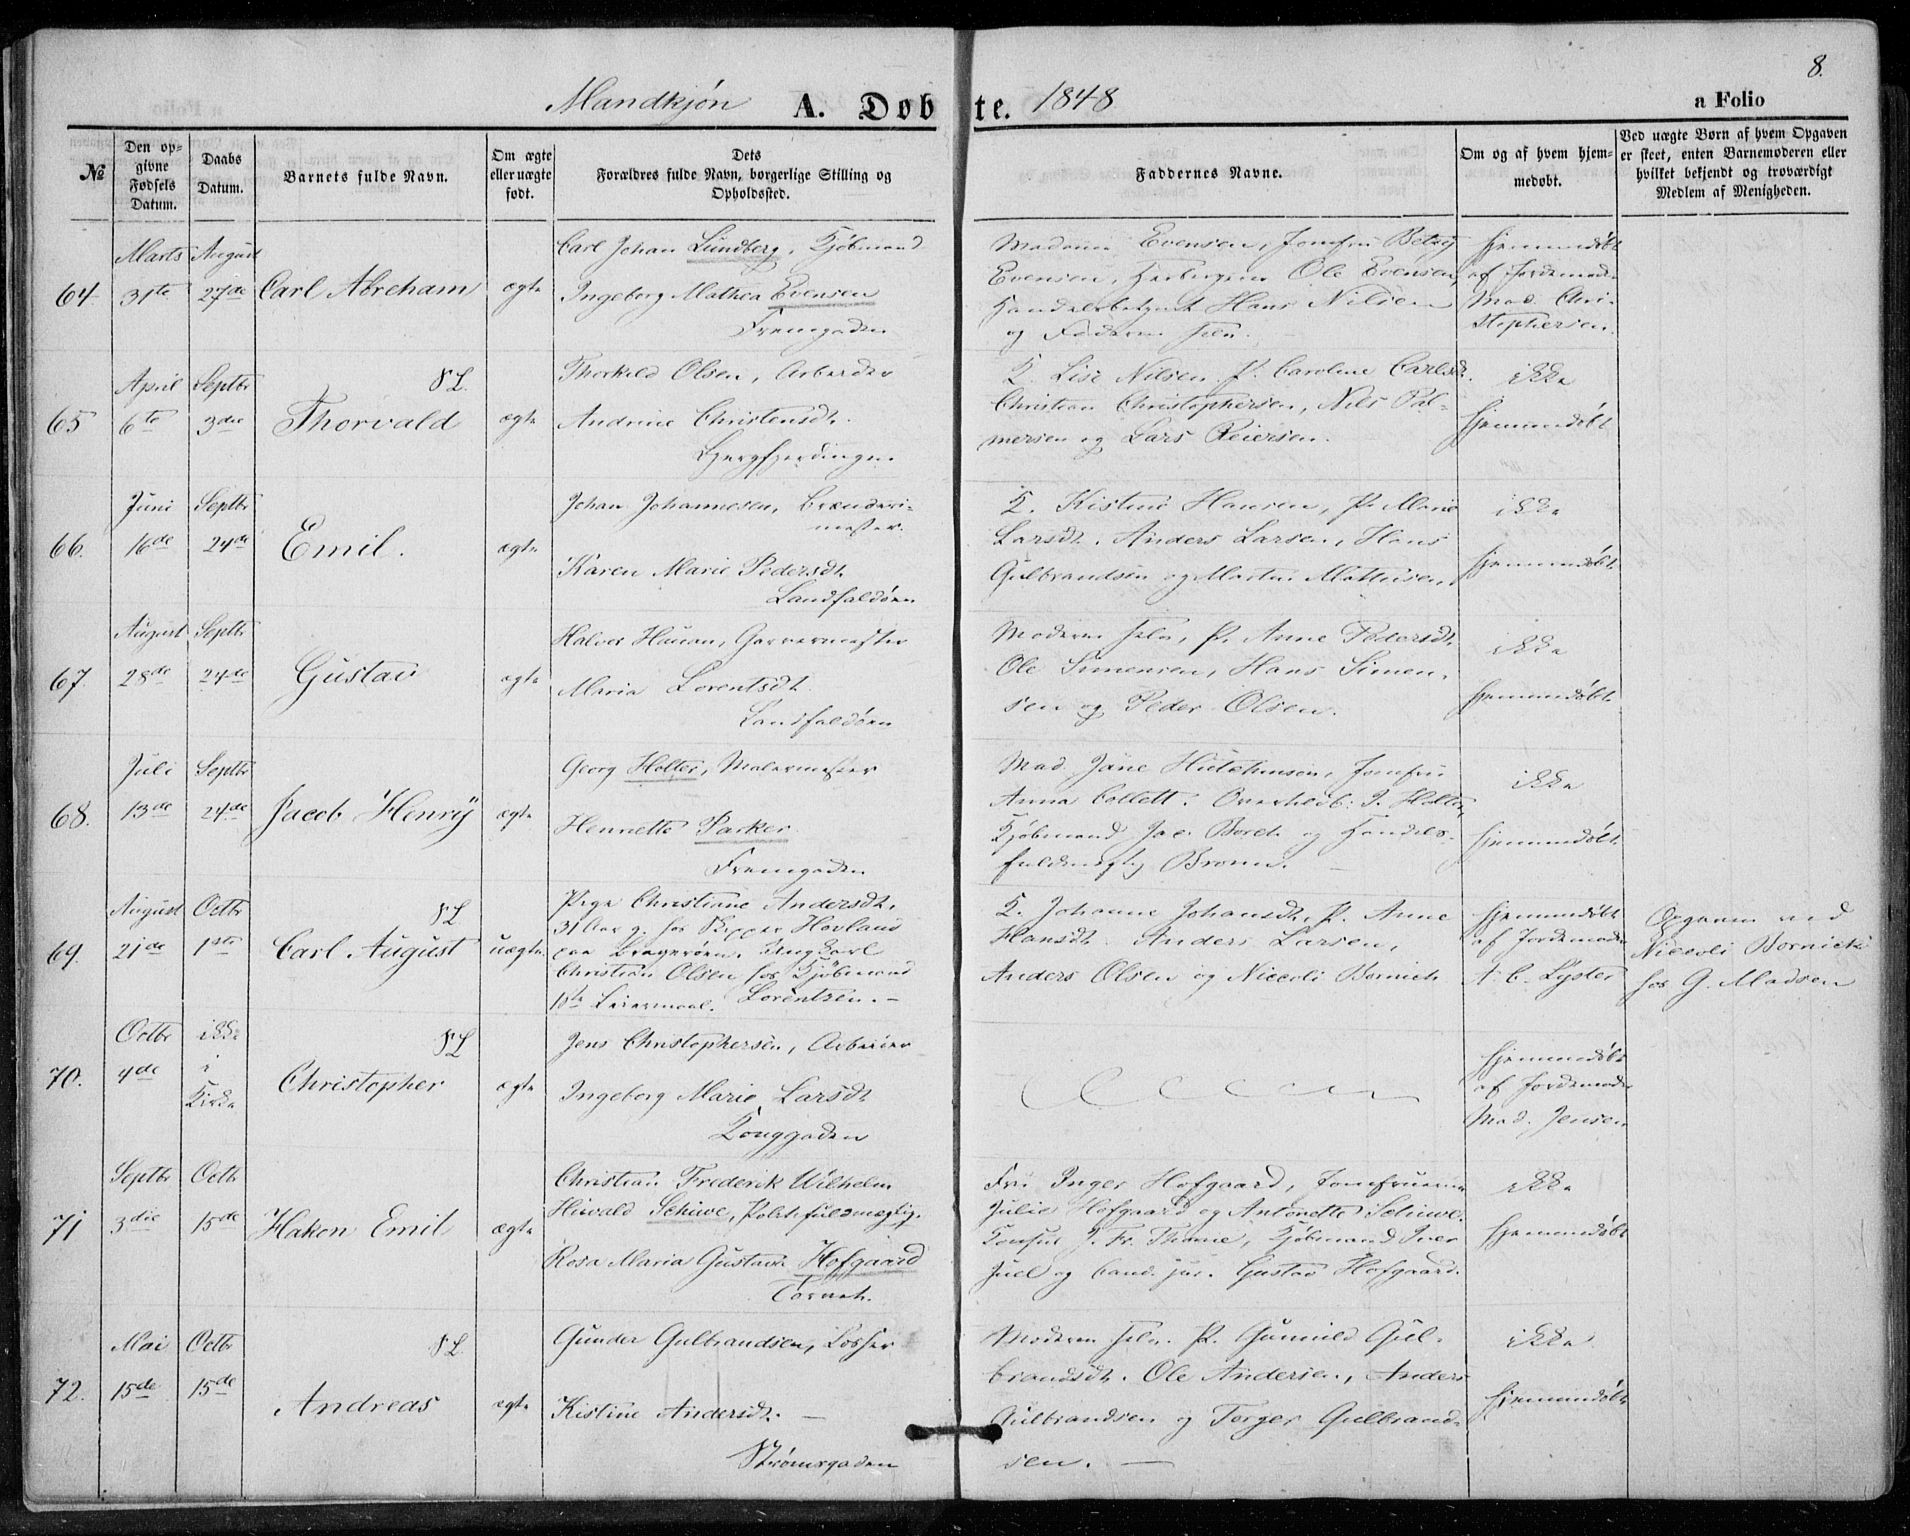 8.
Mandkjøn A. Døbte. 1848 a Folio
№
Den op-
givne
Fødsels
Datum.
Daabs
Datum.
Barnets fulde Navn.
Om ægte
eller uægte
født.
Dets
Forældres fulde Navn, borgerlige Stilling og
Opholdssted.
Faddernes Navne.
Om og af hvem hjem-
medøbt.
Ved uægte Børn af hvem Opgaven
er skeet, enten Barnemoderen eller
hvilket bekjendt og troværdigt
Medlem af Menigheden.
64
Marts
31te
August
27de
Carl Abreham
ægte
Carl Johan Lundberg, Kjøbmand
Ingeborg Mathea Evensen
Fremgaden
Madame Evensen, Jomfru Betsy
Evensen, Ole Evensen,
Hans Nilsen
og Faderen selv.
Hjemmedøbt
af Jordemoder
Mad. Chri-
stophersen.
65
April
6te
Septbr
3die
Thorvald
ægte
Thorkild Olsen, Arbeider
Andrine Christensdt.
K. Lise Nilsen. P. Caroline Carlsdt.
Christian Christophersen, Nils Pal-
mersen og Lars Reiersen.
ikke
hjemmedøbt
66.
Juni
16de
Septbr
24de
Emil.
ægte
Johan Johannesen, Brænderi-
mester.
Karen Marie Pedersdt.
Landfaldøen
K. Kistine Hansen, P. Marie
Larsdt. Anders Larsen, Hans
Gulbrandsen og Martin Mathisen.
ikke
hjemmedøbt
67
August
28de
Septbr
24de
Gustav
ægte
Halvor Hauan, Garvermester
Maria Lorentsdt.
Landfaldøen
Moderen selv, P. Anne Pedersdt.
Ole Simensen, Hans Simen-
sen og Peder Olsen.
ikke
hjemmedøbt
68.
Juli
13de
Septbr
24de
Jacob Henry
ægte
Georg Holter, Malermester
Hennette Parker
Fremgaden
Mad. Jane Hutchinson, Jomfru
Anna Collett. J. Holter,
Kjøbmand Jac. Borch og Handels-
fuldmægtig
ikke
hjemmedøbt
69.
August
21de
Octbr
1ste
Carl August
uægte
Pige Christiane Andersdt.
31 Aar g. hos Skipper Hovland
paa Bragerøen. Ungkarl
Christian Olsen hos Kjøbmand
1ste Leiermaal. Lorentzen. –
K. Johanne Johansdt, P. Anne
Hansdt. Anders Larsen,
Anders Olsen og Niccoli Bornich
hjemmedøbt
af Jordemoder
A. C. Lyster
Opgaven ved
Niccoli Bornich
hos G. Madsen
70.
Octbr
4de
ikke
i
Kirke
Christopher
ægte
Jens Christophersen, Arbeider
Ingeborg Marie Larsdt
Konggaden
hjemmedøbt
af Jordemoder
Mad. Jensen
71
Septbr
3die
Octbr
15de
Hakon Emil
ægte
Christian Frederik Wilhelm
Schiwe, fuldmægtig.
Rosa Maria Gustava Hofgaard
Torvet.
Fru Inger Hofgaard, Jomfruerne
Julie Hofgaard og Antonette Schiwe.
Konsul J. Fr. Thorne, Kjøbmand Iver
Juel og cand. jur. Gustav Hofgaard.
ikke
hjemmedøbt
72.
Mai
15de
Octbr
15de
Andreas
ægte
Gunder Gulbrandsen, Losser
Kistine Andersdt. –
Strømsgaden
Moderen selv. P. Gunnild Gul-
brandsdt. Ole Andersen, Anders
Gulbrandsen og Torger Gulbrand-
sen. –
ikke
hjemmedøbt